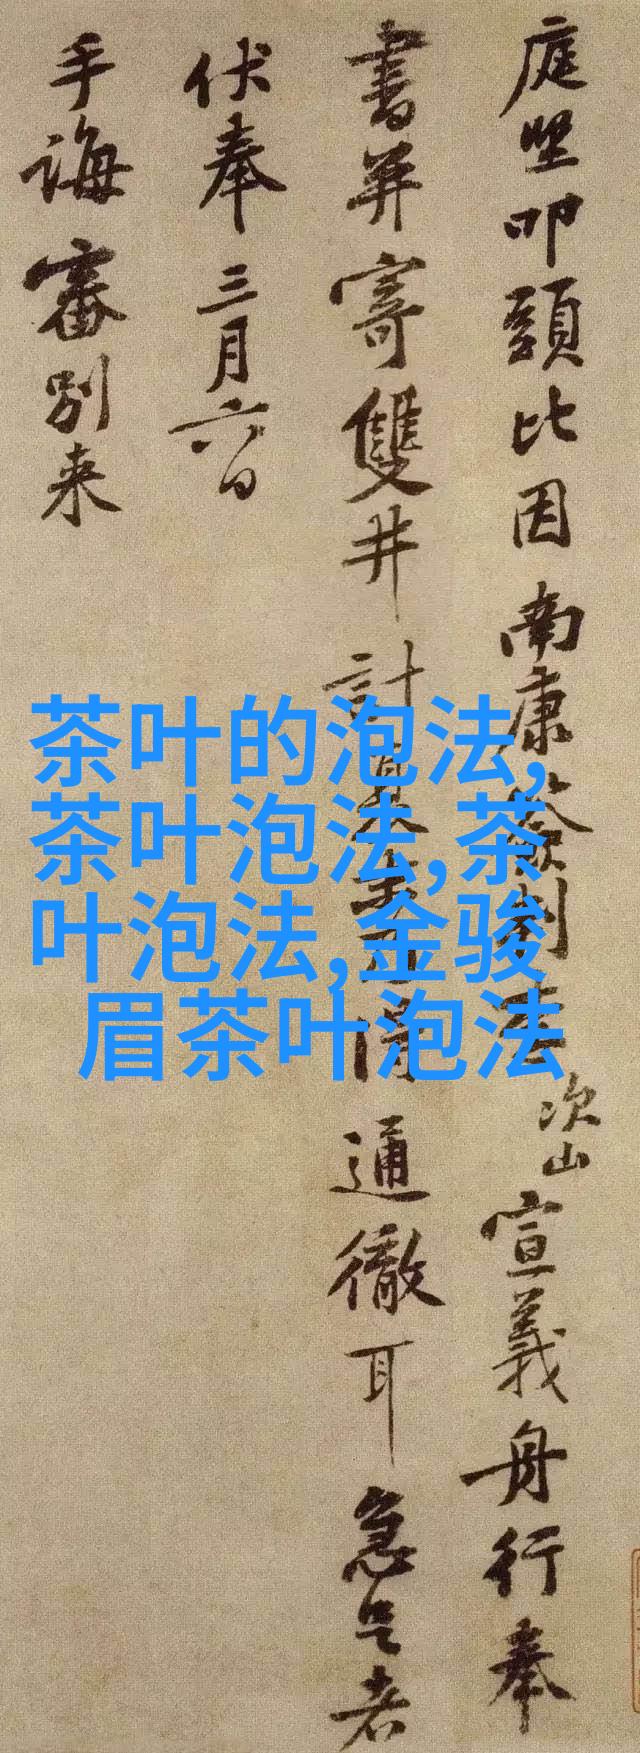 庭堅叩頭比因南康簽判李次山宣義舟行奉
書并寄雙井計得通徹耳急足者
伏奉三月六日
手誨審別来
茶叶的泡法,
茶叶泡法,茶
叶泡法,金骏
眉茶叶泡法